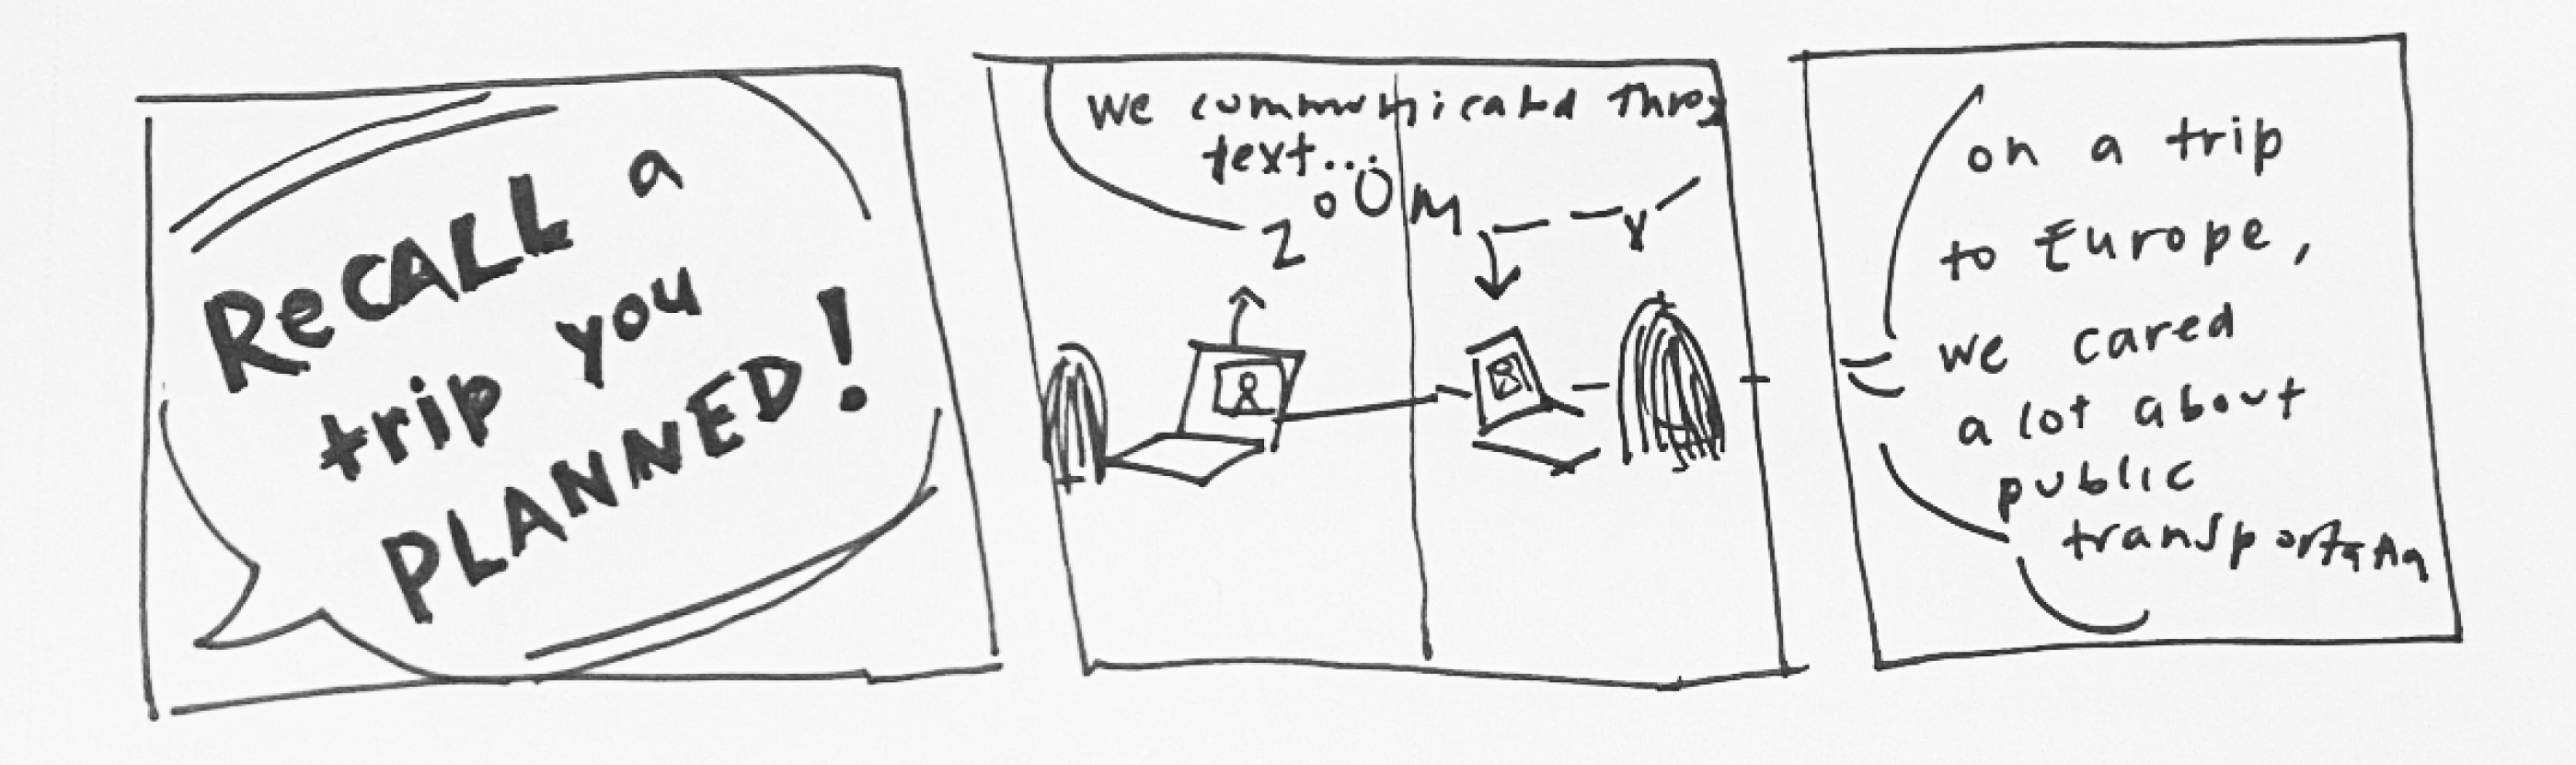 ReCALL a
trip you
PLANNED!
We communicated throg
text...
zoOM
on a trip
to Europe,
we cared
a lot about
public